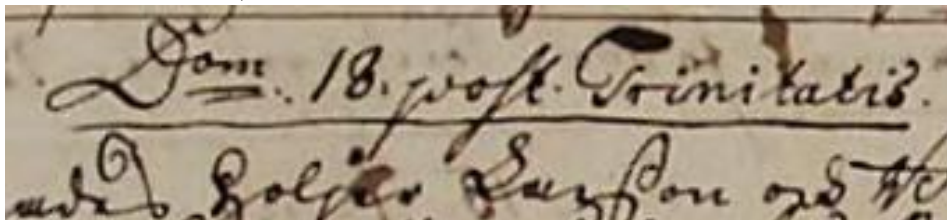 Dom. 18. post. Trinitatis.
Holger Larsson och